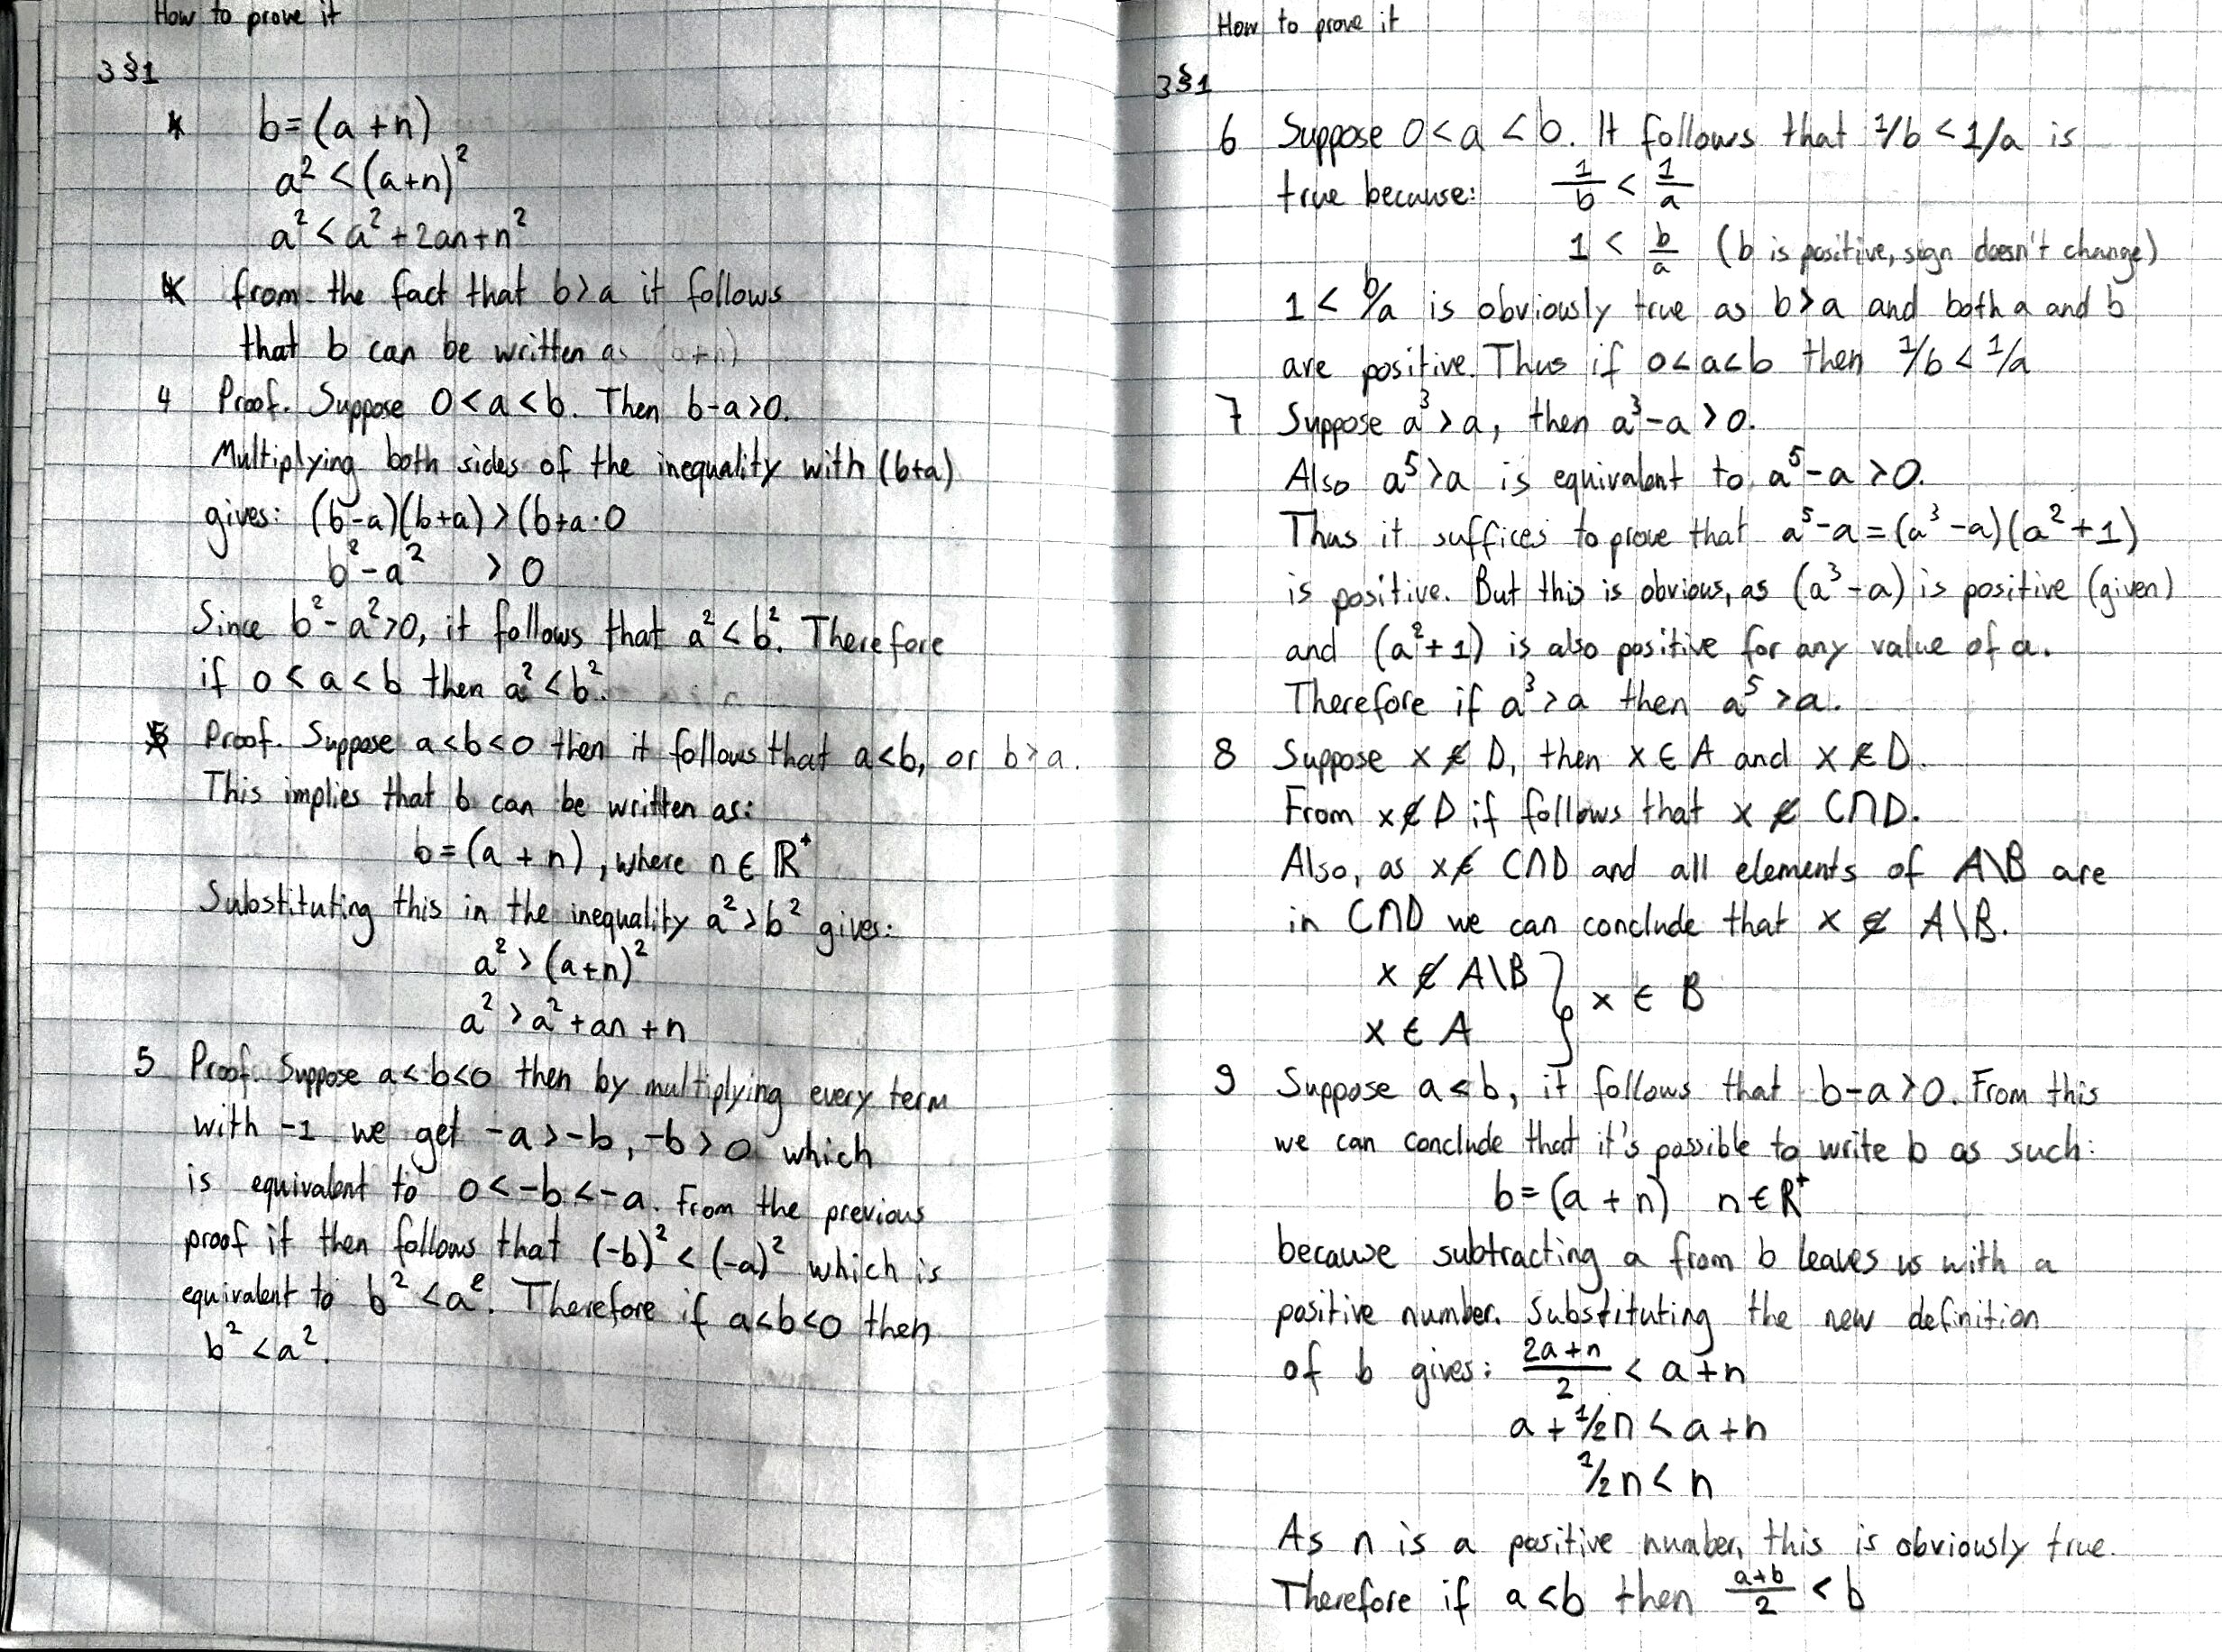 How to prove it
3§1
b=(a+n)
a² <(a+n)²
a²<a²+2an+n²
from the fact that b>a it follows
that b can be written as (a+n)
4 Proof. Suppose 0<a<b. Then b-a>0.
Multiplying both sides of the inequality with (b+a)
gives: (b-a)(b+a)>(b+a·0
b²-a² >0
Since b²-a²>0, it follows that a²<b². Therefore
if 0<a<b then a²<b².
5 Proof. Suppose a<b<0 then it follows that a<b, or b>a.
This implies that b can be written as:
b=(a+n), where n∈ℝ⁺
Substituting this in the inequality a²>b² gives:
a²>(a+n)²
a²>a²+an+n
5 Proof. Suppose a<b<0 then by multiplying every term
with -1 we get -a>-b, -b>0 which
is equivalent to 0<-b<-a. From the previous
proof it then follows that (-b)²<(-a)² which is
equivalent to b²<a². Therefore if a<b<0 then
b²<a².
How to prove it
3§1
6 Suppose 0<a<b. It follows that 1/b<1/a is
true because: 1/b < 1/a
1 < b/a (b is positive, sign doesn't change)
1 < b/a is obviously true as b>a and both a and b
are positive. Thus if 0<a<b then 1/b < 1/a
7 Suppose a³>a, then a³-a>0.
Also a⁵>a is equivalent to a⁵-a>0.
Thus it suffices to prove that a⁵-a=(a³-a)(a²+1)
is positive. But this is obvious, as (a³-a) is positive (given)
and (a²+1) is also positive for any value of a.
Therefore if a³>a then a⁵>a.
8 Suppose x∉D, then x∈A and x∉D.
From x∉D it follows that x∉C∩D.
Also, as x∉C∩D and all elements of A\B are
in C∩D we can conclude that x∉A\B.
x∉A\B
x∈A } x∈B
9 Suppose a<b, it follows that b-a>0. From this
we can conclude that it's possible to write b as such:
b=(a+n) n∈ℝ⁺
because subtracting a from b leaves us with a
positive number. Substituting the new definition
of b gives: (2a+n)/2 < a+n
a+1/2n<a+n
1/2n<n
As n is a positive number, this is obviously true.
Therefore if a<b then (a+b)/2 < b